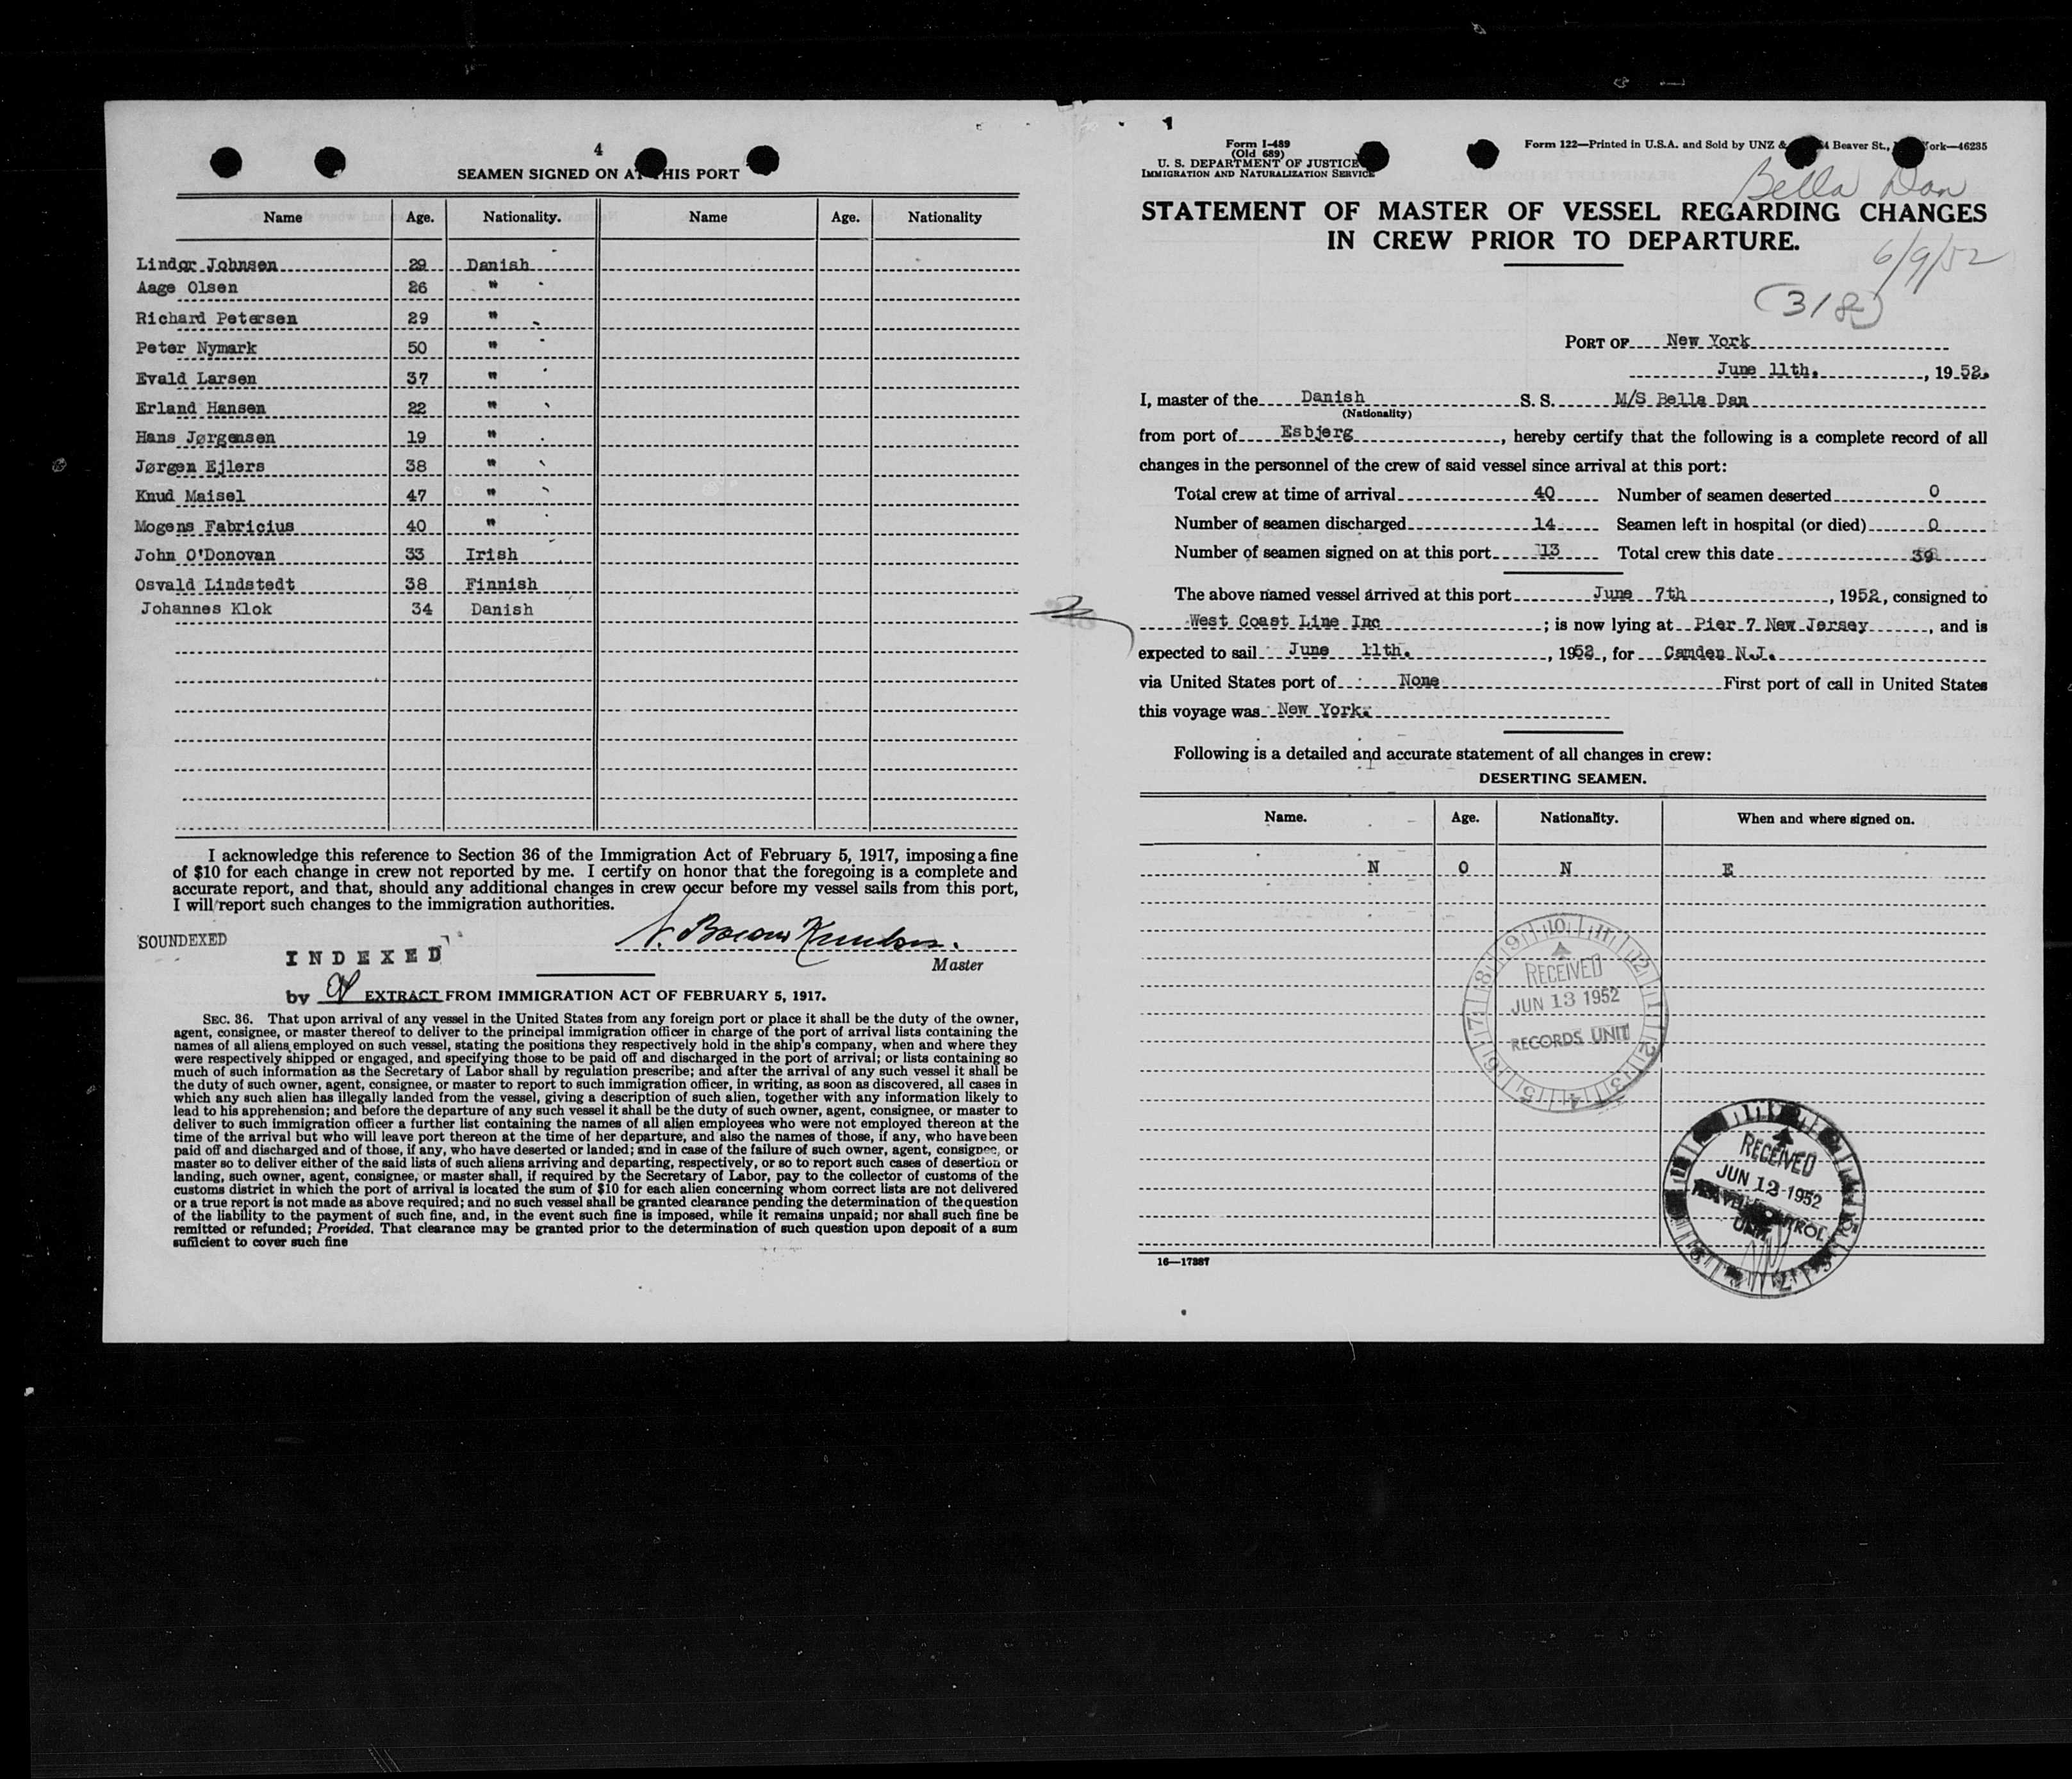 4
SEAMEN SIGNED ON AT THIS PORT
Name Age. Nationality. Name Age. Nationality
Lindor Johnsen 29 Danish
Aage Olsen 26 "
Richard Petersen 29 "
Peter Nymark 50 "
Evald Larsen 37 "
Erland Hansen 22 "
Hans Jørgensen 19 "
Jørgen Ejlers 38 "
Knud Maisel 47 "
Mogens Fabricius 40 "
John O'Donovan 33 Irish
Osvald Lindstedt 38 Finnish
Johannes Klok 34 Danish
I acknowledge this reference to Section 36 of the Immigration Act of February 5, 1917, imposing a fine
of $10 for each change in crew not reported by me. I certify on honor that the foregoing is a complete and
accurate report, and that, should any additional changes in crew occur before my vessel sails from this port,
I will report such changes to the immigration authorities.
SOUNDEXED
INDEXED
Master
by EXTRACT FROM IMMIGRATION ACT OF FEBRUARY 5, 1917.
SEC. 36. That upon arrival of any vessel in the United States from any foreign port or place it shall be the duty of the owner,
agent, consignee, or master thereof to deliver to the principal immigration officer in charge of the port of arrival lists containing the
names of all aliens employed on such vessel, stating the positions they respectively hold in the ship's company, when and where they
were respectively shipped or engaged, and specifying those to be paid off and discharged in the port of arrival; or lists containing so
much of such information as the Secretary of Labor shall by regulation prescribe; and after the arrival of any such vessel it shall be
the duty of such owner, agent, consignee, or master to report to such immigration officer, in writing, as soon as discovered, all cases in
which any such alien has illegally landed from the vessel, giving a description of such alien, together with any information likely to
lead to his apprehension; and before the departure of any such vessel it shall be the duty of such owner, agent, consignee, or master to
deliver to such immigration officer a further list containing the names of all alien employees who were not employed thereon at the
time of the arrival but who will leave port thereon at the time of her departure, and also the names of those, if any, who have been
paid off and discharged and of those, if any, who have deserted or landed; and in case of the failure of such owner, agent, consignee, or
master so to deliver either of the said lists of such aliens arriving and departing, respectively, or so to report such cases of desertion or
landing, such owner, agent, consignee, or master shall, if required by the Secretary of Labor, pay to the collector of customs of the
customs district in which the port of arrival is located the sum of $10 for each alien concerning whom correct lists are not delivered
or a true report is not made as above required; and no such vessel shall be granted clearance pending the determination of the question
of the liability to the payment of such fine, and, in the event such fine is imposed, while it remains unpaid; nor shall such fine be
remitted or refunded; Provided, That clearance may be granted prior to the determination of such question upon deposit of a sum
sufficient to cover such fine
1
Form I-489
(Old 689)
U. S. DEPARTMENT OF JUSTICE
IMMIGRATION AND NATURALIZATION SERVICE
Form 122—Printed in U.S.A. and Sold by UNZ & Beaver St., York—46235
Bella Dan
STATEMENT OF MASTER OF VESSEL REGARDING CHANGES
IN CREW PRIOR TO DEPARTURE.
6/9/52
(318)
PORT OF New York
June 11th. , 19 52.
I, master of the Danish S. S. M/S Bella Dan
(Nationality)
from port of Esbjerg , hereby certify that the following is a complete record of all
changes in the personnel of the crew of said vessel since arrival at this port:
Total crew at time of arrival 40 Number of seamen deserted 0
Number of seamen discharged 14 Seamen left in hospital (or died) 0
Number of seamen signed on at this port 13 Total crew this date 39
The above named vessel arrived at this port June 7th , 1952, consigned to
West Coast Line Inc ; is now lying at Pier 7 New Jersey , and is
expected to sail June 11th. , 1952, for Camden N.J.
via United States port of None First port of call in United States
this voyage was New York.
Following is a detailed and accurate statement of all changes in crew:
DESERTING SEAMEN.
Name. Age. Nationality. When and where signed on.
N O N E
RECEIVED
JUN 13 1952
RECORDS UNIT
RECEIVED
JUN 12 1952
UNIT
16—17887